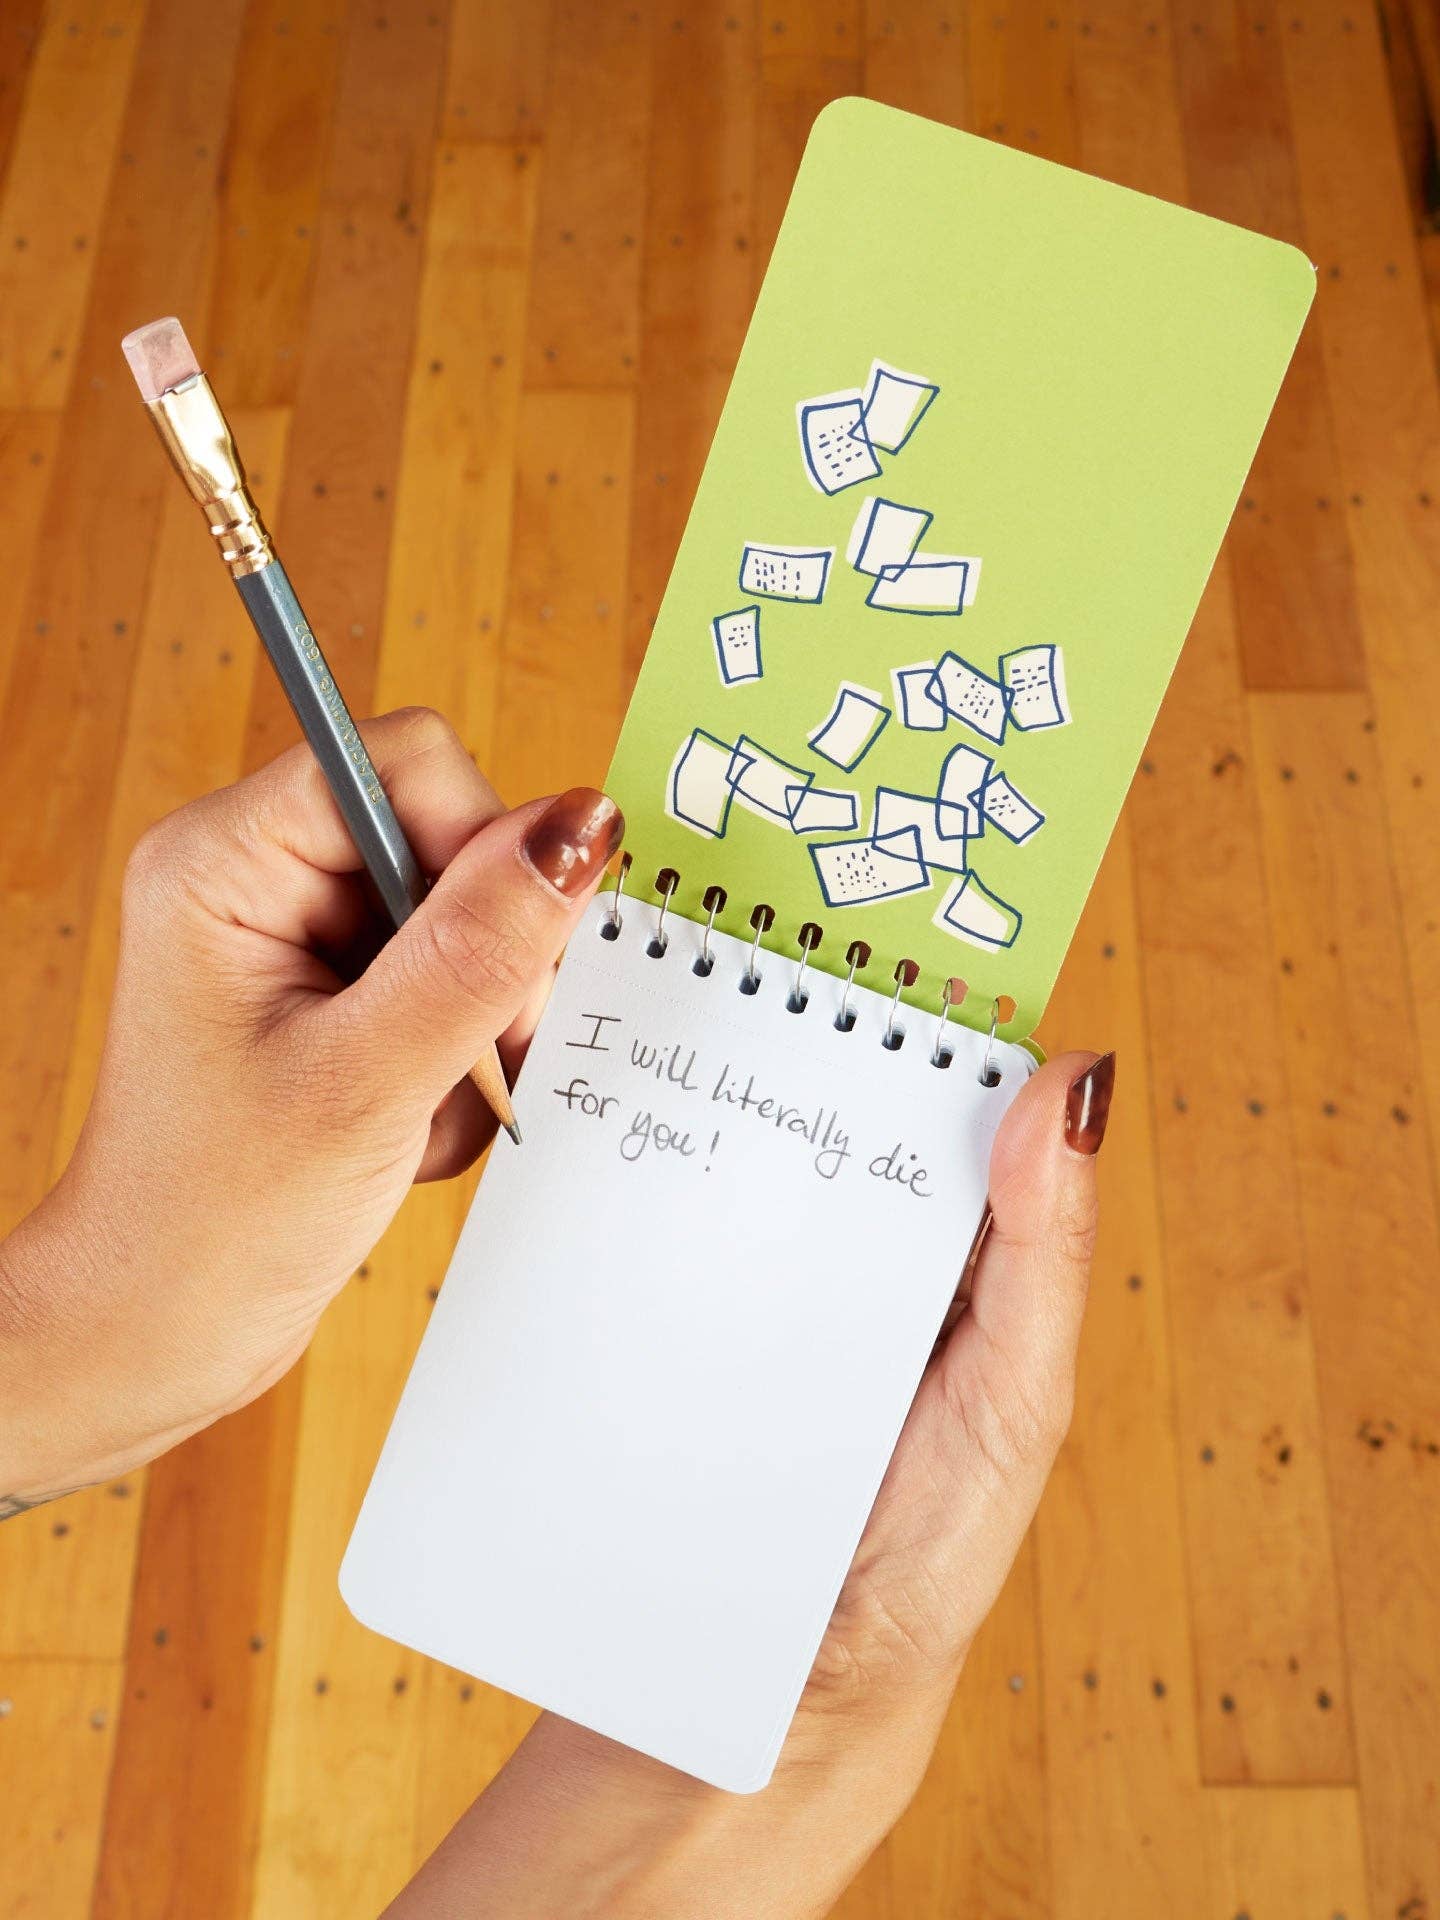 I will literally die
for you!
BLACKWING • 602